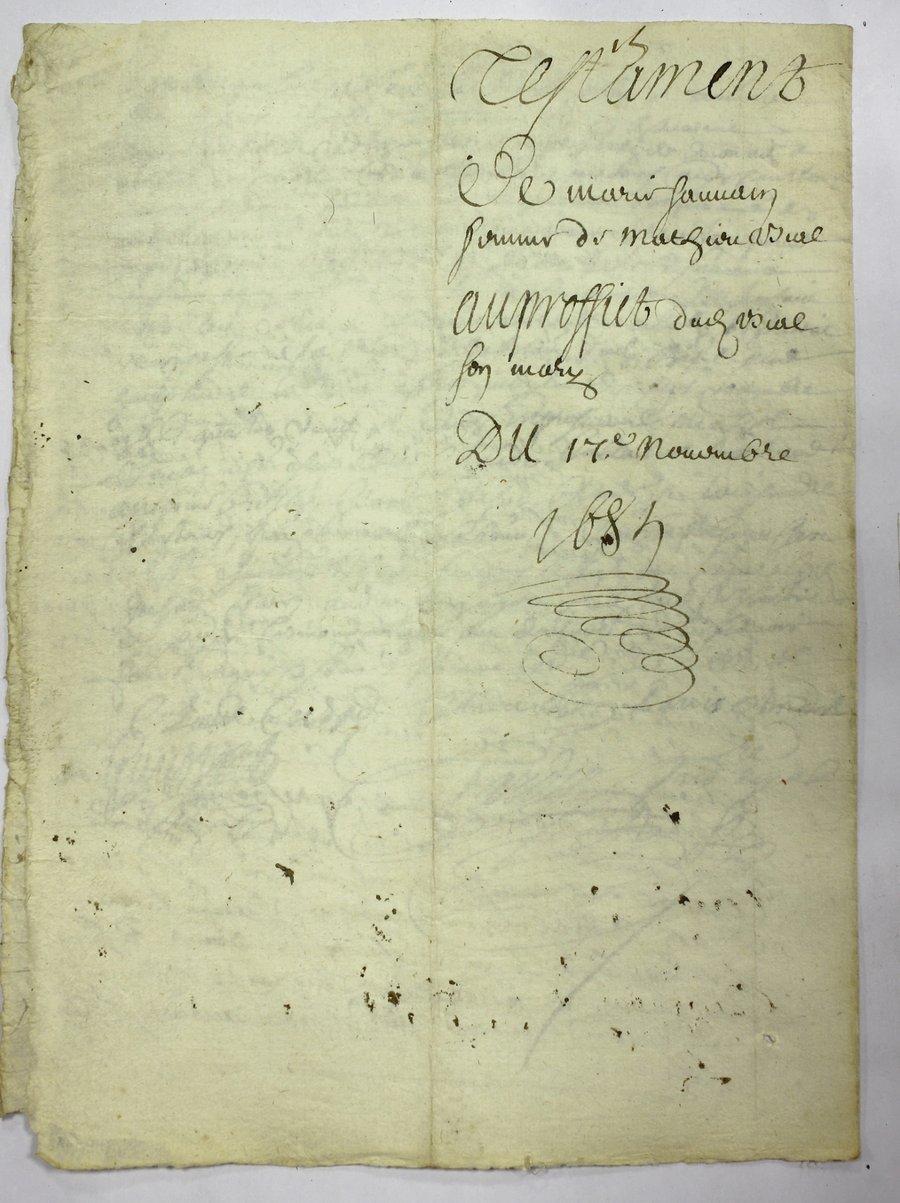 Testament
De marie sauvain
femme de Mathieu Vial
au proffict dud vial
son mary
DU 17.e Novembre
1684